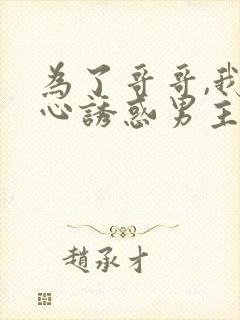 為了哥哥,我
心誘惑男主
趙承才